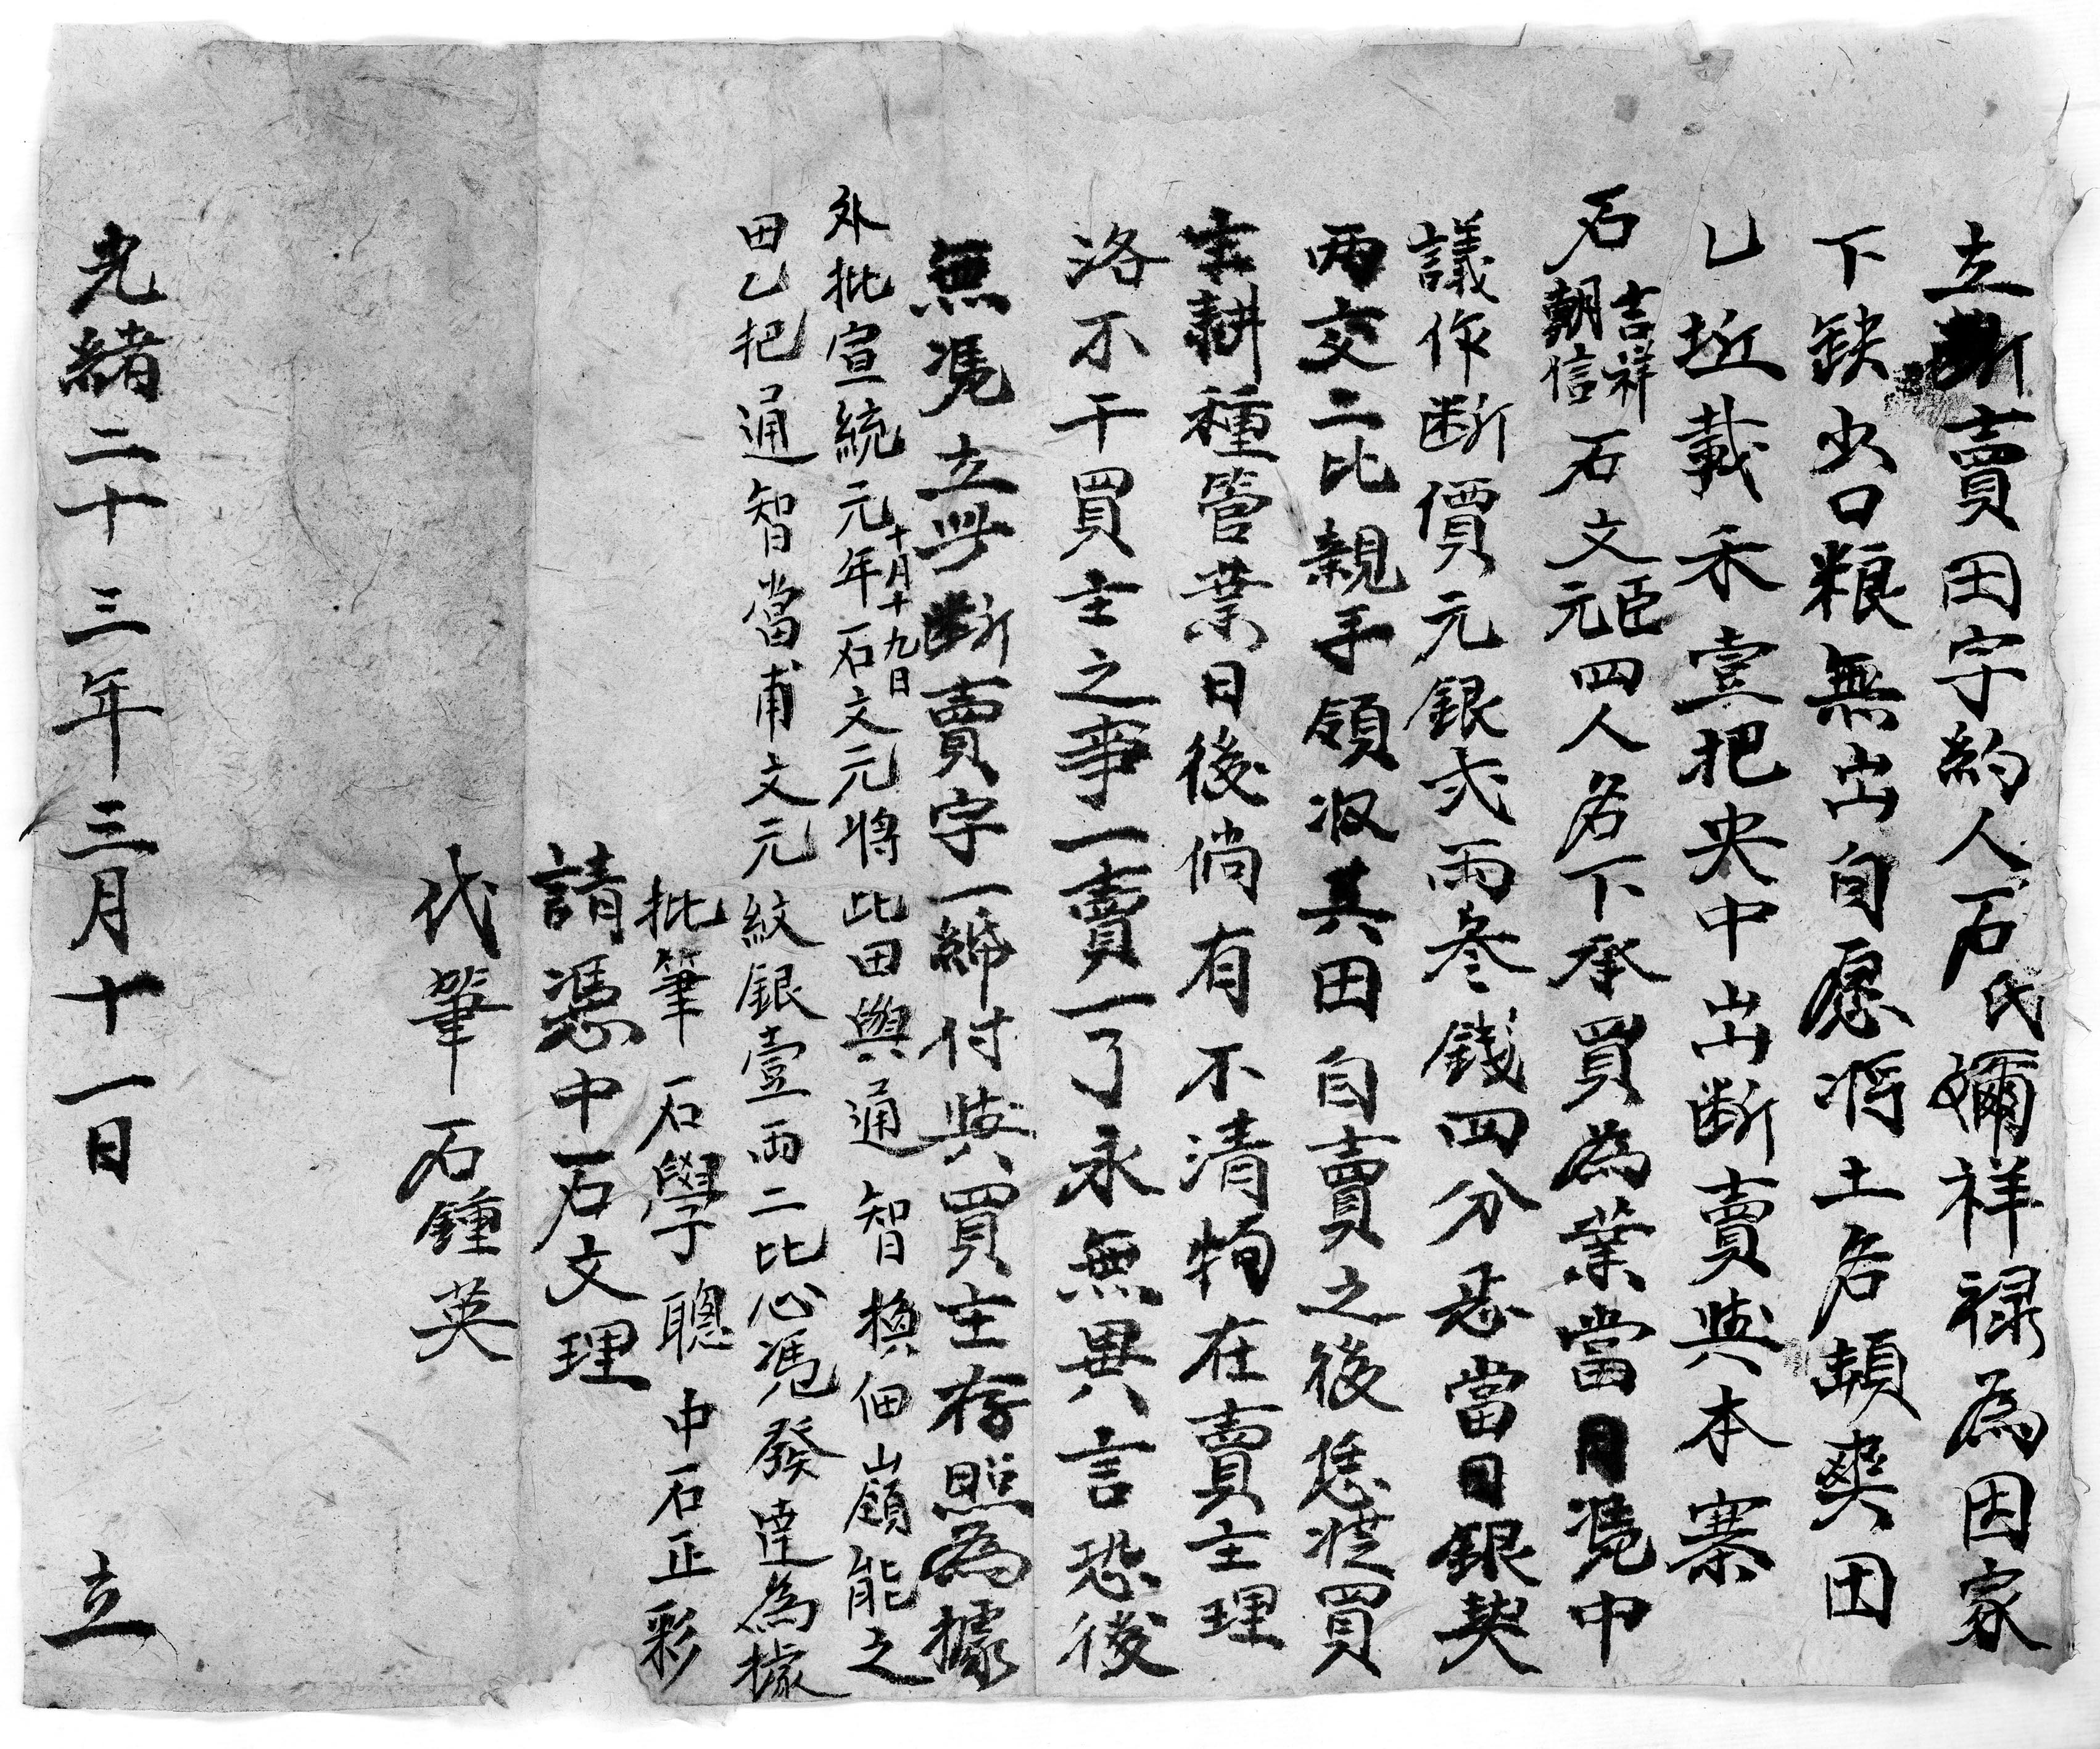 立斷賣田字約人石氏嬭祥禄為因家
下缺少口粮無出自愿将土名頓奭田
乚坵載禾壹把央中出断賣與本寨
石吉祥朝信石文臣元四人名下承買為業當日凴中
議作断價元銀弍兩叁錢四分恁當日銀契
兩交二比親手領収其田自賣之後恁凴買
主耕種管業日後倘有不清物在賣主理
洛不干買主之事一賣一了永無異言恐後
無凴立此断賣字一紙付與買主存照為據
外批宣統元年十月十九日石文元将此田與通智換佃山嶺能之
田乙把通智當甫文元紋銀壹兩二比心凴發達為據
批筆石學聰中石正彩
請憑中石文理
代筆石鍾英
光緒二十三年三月十一日立